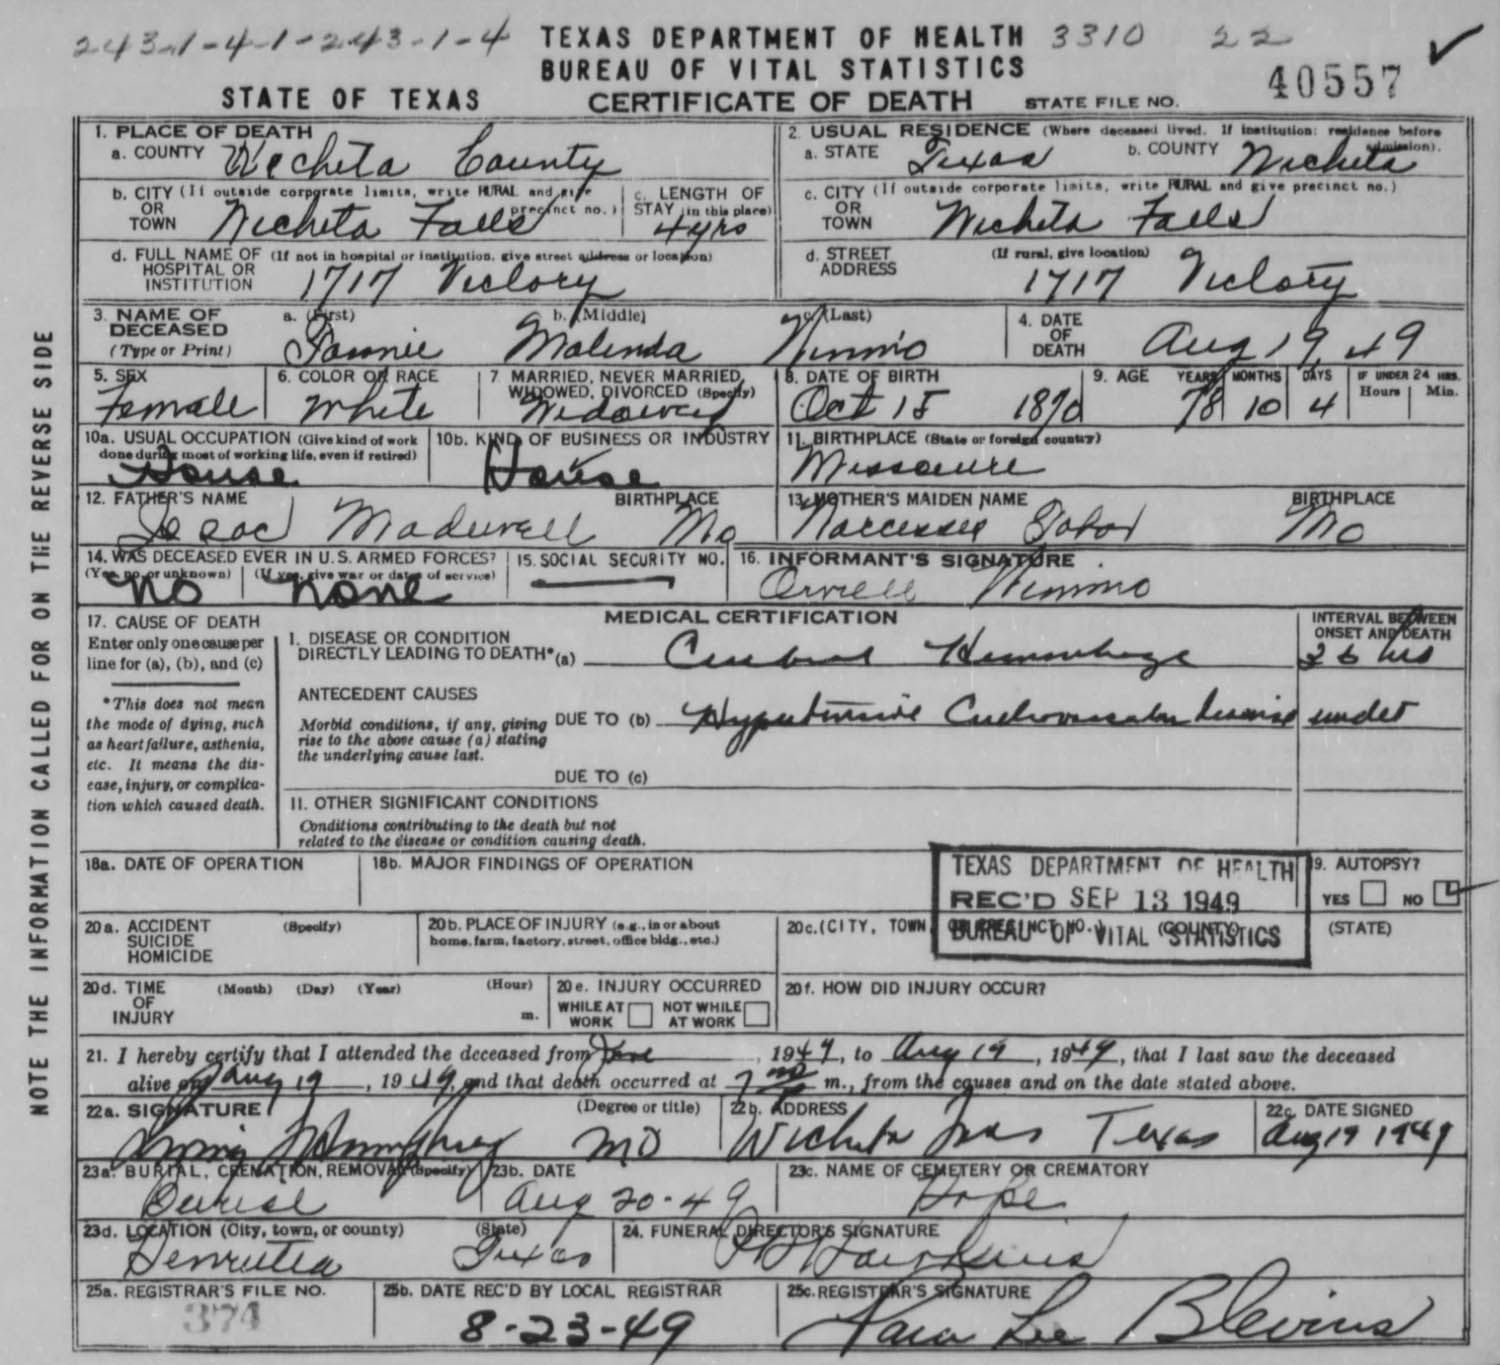 243-1-4-1-243-1-4 TEXAS DEPARTMENT OF HEALTH 3310 22
BUREAU OF VITAL STATISTICS
STATE OF TEXAS CERTIFICATE OF DEATH STATE FILE NO. 40557
NOTE THE INFORMATION CALLED FOR ON THE REVERSE SIDE
1. PLACE OF DEATH
a. COUNTY Wichita County
2. USUAL RESIDENCE (Where deceased lived. If institution: residence before admission).
a. STATE Texas b. COUNTY Wichita
b. CITY (If outside corporate limits, write RURAL and give precinct no.)
OR TOWN Wichita Falls
c. LENGTH OF STAY (in this place) 4 yrs
c. CITY (If outside corporate limits, write RURAL and give precinct no.)
OR TOWN Wichita Falls
d. FULL NAME OF (If not in hospital or institution, give street address or location)
HOSPITAL OR INSTITUTION 1717 Victory
d. STREET ADDRESS (If rural, give location)
1717 Victory
3. NAME OF DECEASED (Type or Print)
a. (First) b. (Middle) c. (Last)
Fannie Malinda Nimmo
4. DATE OF DEATH Aug 19, 49
5. SEX Female
6. COLOR OR RACE White
7. MARRIED, NEVER MARRIED, WIDOWED, DIVORCED (Specify) Widowed
8. DATE OF BIRTH Oct 15 1870
9. AGE YEARS 78 MONTHS 10 DAYS 4 IF UNDER 24 HRS. Hours Min.
10a. USUAL OCCUPATION (Give kind of work done during most of working life, even if retired) House
10b. KIND OF BUSINESS OR INDUSTRY House
11. BIRTHPLACE (State or foreign country) Missourie
12. FATHER'S NAME BIRTHPLACE
Isaac Maduvell Mo
13. MOTHER'S MAIDEN NAME BIRTHPLACE
Narcessee Mo
14. WAS DECEASED EVER IN U.S. ARMED FORCES?
(Yes, no, or unknown) (If yes, give war or dates of service)
No None
15. SOCIAL SECURITY NO. —
16. INFORMANT'S SIGNATURE
Nimmo
17. CAUSE OF DEATH
Enter only one cause per line for (a), (b), and (c)
*This does not mean the mode of dying, such as heart failure, asthenia, etc. It means the disease, injury, or complication which caused death.
MEDICAL CERTIFICATION
INTERVAL BETWEEN ONSET AND DEATH
I. DISEASE OR CONDITION DIRECTLY LEADING TO DEATH* (a) Cerebral Hemorrhage 36 hrs
ANTECEDENT CAUSES
Morbid conditions, if any, giving rise to the above cause (a) stating the underlying cause last.
DUE TO (b) Hypertensive Cerebrovascular disease undet
DUE TO (c)
II. OTHER SIGNIFICANT CONDITIONS
Conditions contributing to the death but not related to the disease or condition causing death.
18a. DATE OF OPERATION
18b. MAJOR FINDINGS OF OPERATION
TEXAS DEPARTMENT OF HEALTH
REC'D SEP 13 1949
BUREAU OF VITAL STATISTICS
19. AUTOPSY?
YES NO
20a. ACCIDENT SUICIDE HOMICIDE (Specify)
20b. PLACE OF INJURY (e.g., in or about home, farm, factory, street, office bldg., etc.)
20c. (CITY, TOWN, OR PRECINCT NO.) (COUNTY) (STATE)
20d. TIME OF INJURY (Month) (Day) (Year) (Hour) m.
20e. INJURY OCCURRED
WHILE AT WORK NOT WHILE AT WORK
20f. HOW DID INJURY OCCUR?
21. I hereby certify that I attended the deceased from June, 1949, to Aug 19, 1949, that I last saw the deceased
alive on Aug 19, 1949, and that death occurred at m., from the causes and on the date stated above.
22a. SIGNATURE (Degree or title)
Humphrey MD
22b. ADDRESS
Wichita Texas
22c. DATE SIGNED
Aug 19 1949
23a. BURIAL, CREMATION, REMOVAL (Specify)
Burial
23b. DATE
Aug 20-49
23c. NAME OF CEMETERY OR CREMATORY
Hope
23d. LOCATION (City, town, or county) (State)
Henrietta Texas
24. FUNERAL DIRECTOR'S SIGNATURE
Hawkins
25a. REGISTRAR'S FILE NO.
374
25b. DATE REC'D BY LOCAL REGISTRAR
8-23-49
25c. REGISTRAR'S SIGNATURE
Lee Blevins